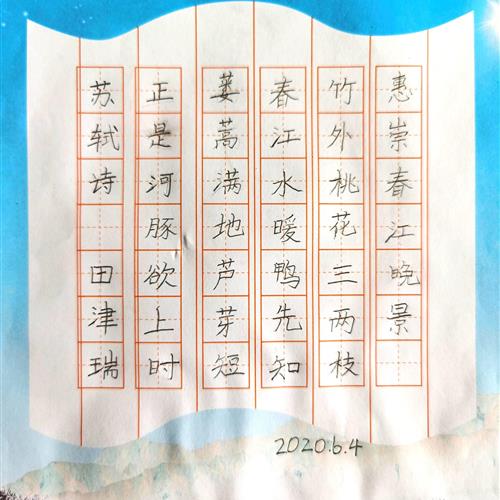 惠崇春江晚景
竹外桃花三两枝
春江水暖鸭先知
蒌蒿满地芦芽短
正是河豚欲上时
苏轼诗 田津瑞
2020.6.4